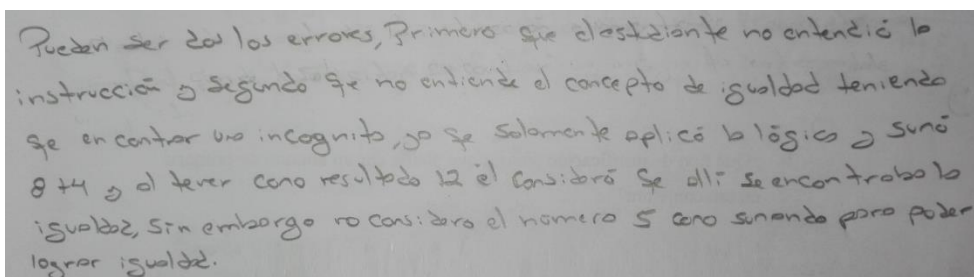 Pueden ser dos los errores, Primero que el estudiante no entendió la
instrucción y segundo qe no entiende el concepto de igualdad teniendo
qe encontrar una incognita, ya qe solamente aplicó la lógica y sumó
8+4 y al tener como resultado 12 él consideró qe allí se encontraba la
igualdad, sin embargo no considero el número 5 como sumando para poder
lograr igualdad.